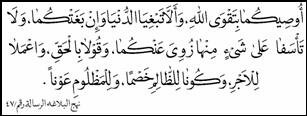 أُوصِيكُمَا بِتَقْوَى اللهِ، وَأَلَّا تَبْغِيَا الدُّنْيَا وَإِنْ بَغَتْكُمَا، وَلَا
تَأْسَفَا عَلَى شَيْءٍ مِنْهَا زُوِيَ عَنْكُمَا، وَقُولَا بِالْحَقِّ، وَاعْمَلَا
لِلْأَجْرِ، وَكُونَا لِلظَّالِمِ خَصْمًا، وَلِلْمَظْلُومِ عَوْنًا.
نهج البلاغه الرسالة رقم/٤٧